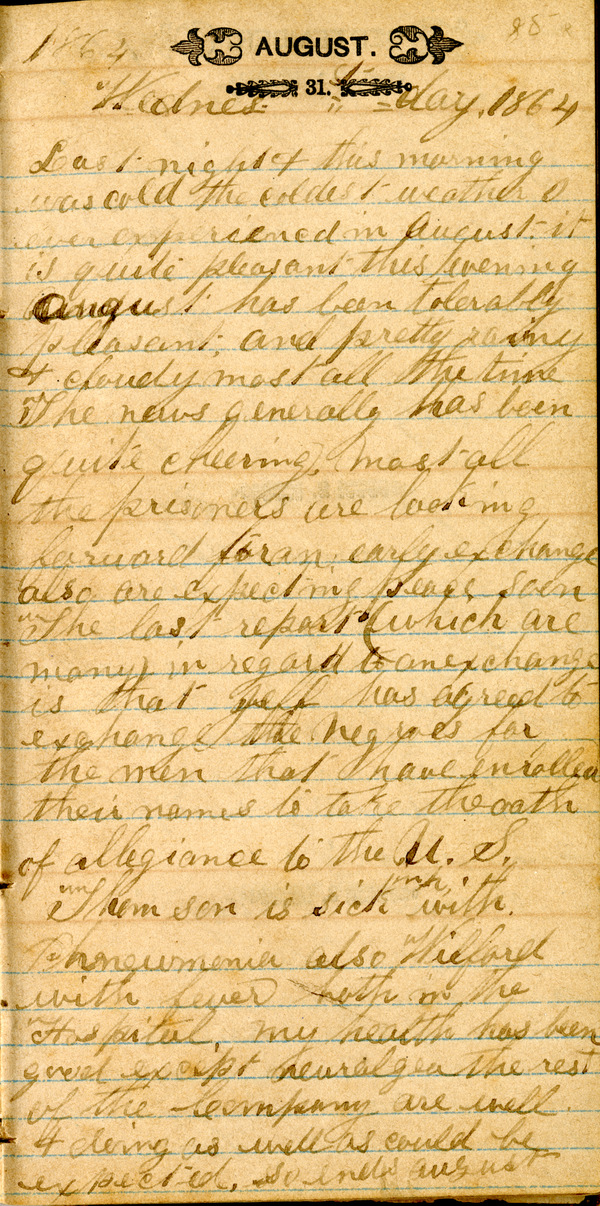 1864
AUGUST.
31.
Wednes = day, 1864
Last night & this morning
was cold the coldest weather I
ever experienced in August. it
is quite pleasant this evening
August has been tolerably
pleasant, and pretty rainy
& cloudy most all the time
The news generally has been
quite cheering, most all
the prisoners are looking
forward for an early exchange
also are expecting peace soon
The last report (which are
many) in regard to an exchange
is that Jeff has agreed to
exchange the Negroes for
the men that have enrolled
their names to take the oath
of allegiance to the U. S.
Thomson is sick with
Phneumonia also Wilford
with fever both in the
Hospital, my health has been
good except neuralgea the rest
of the Company are well
& doing as well as could be
expected. So ends august